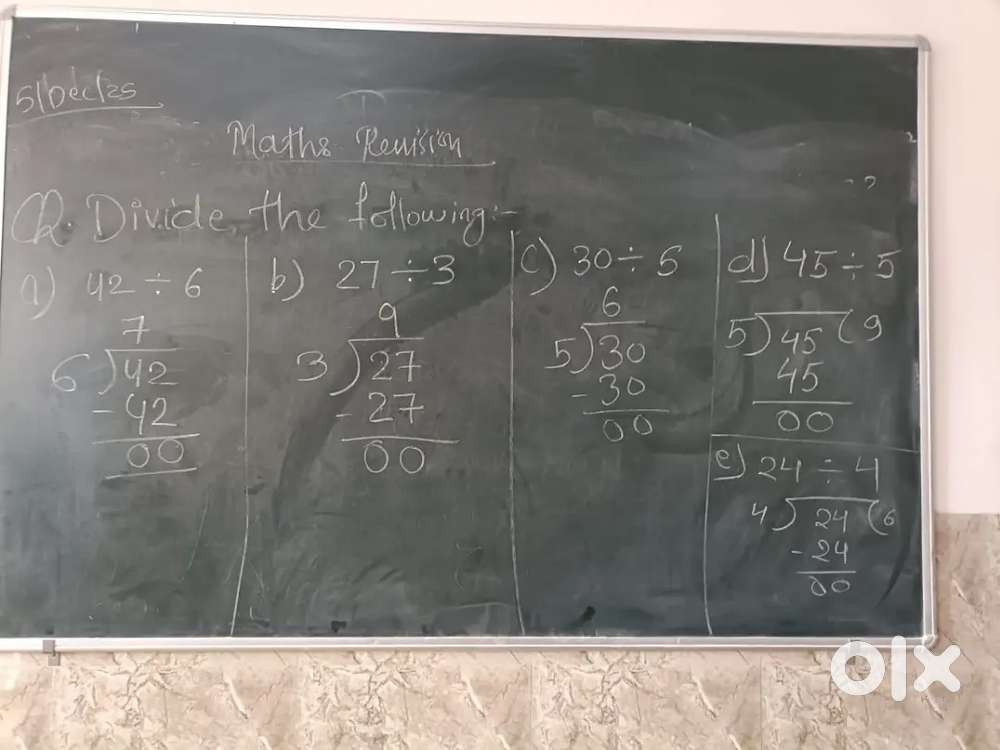 5/Dec/25
Maths Revision
Q. Divide the following:-
a) 42 ÷ 6
7
6 ) 42
- 42
00
b) 27 ÷ 3
9
3 ) 27
- 27
00
c) 30 ÷ 5
6
5 ) 30
- 30
00
d) 45 ÷ 5
5 ) 45 ( 9
45
00
e) 24 ÷ 4
4 ) 24 ( 6
- 24
00
olx